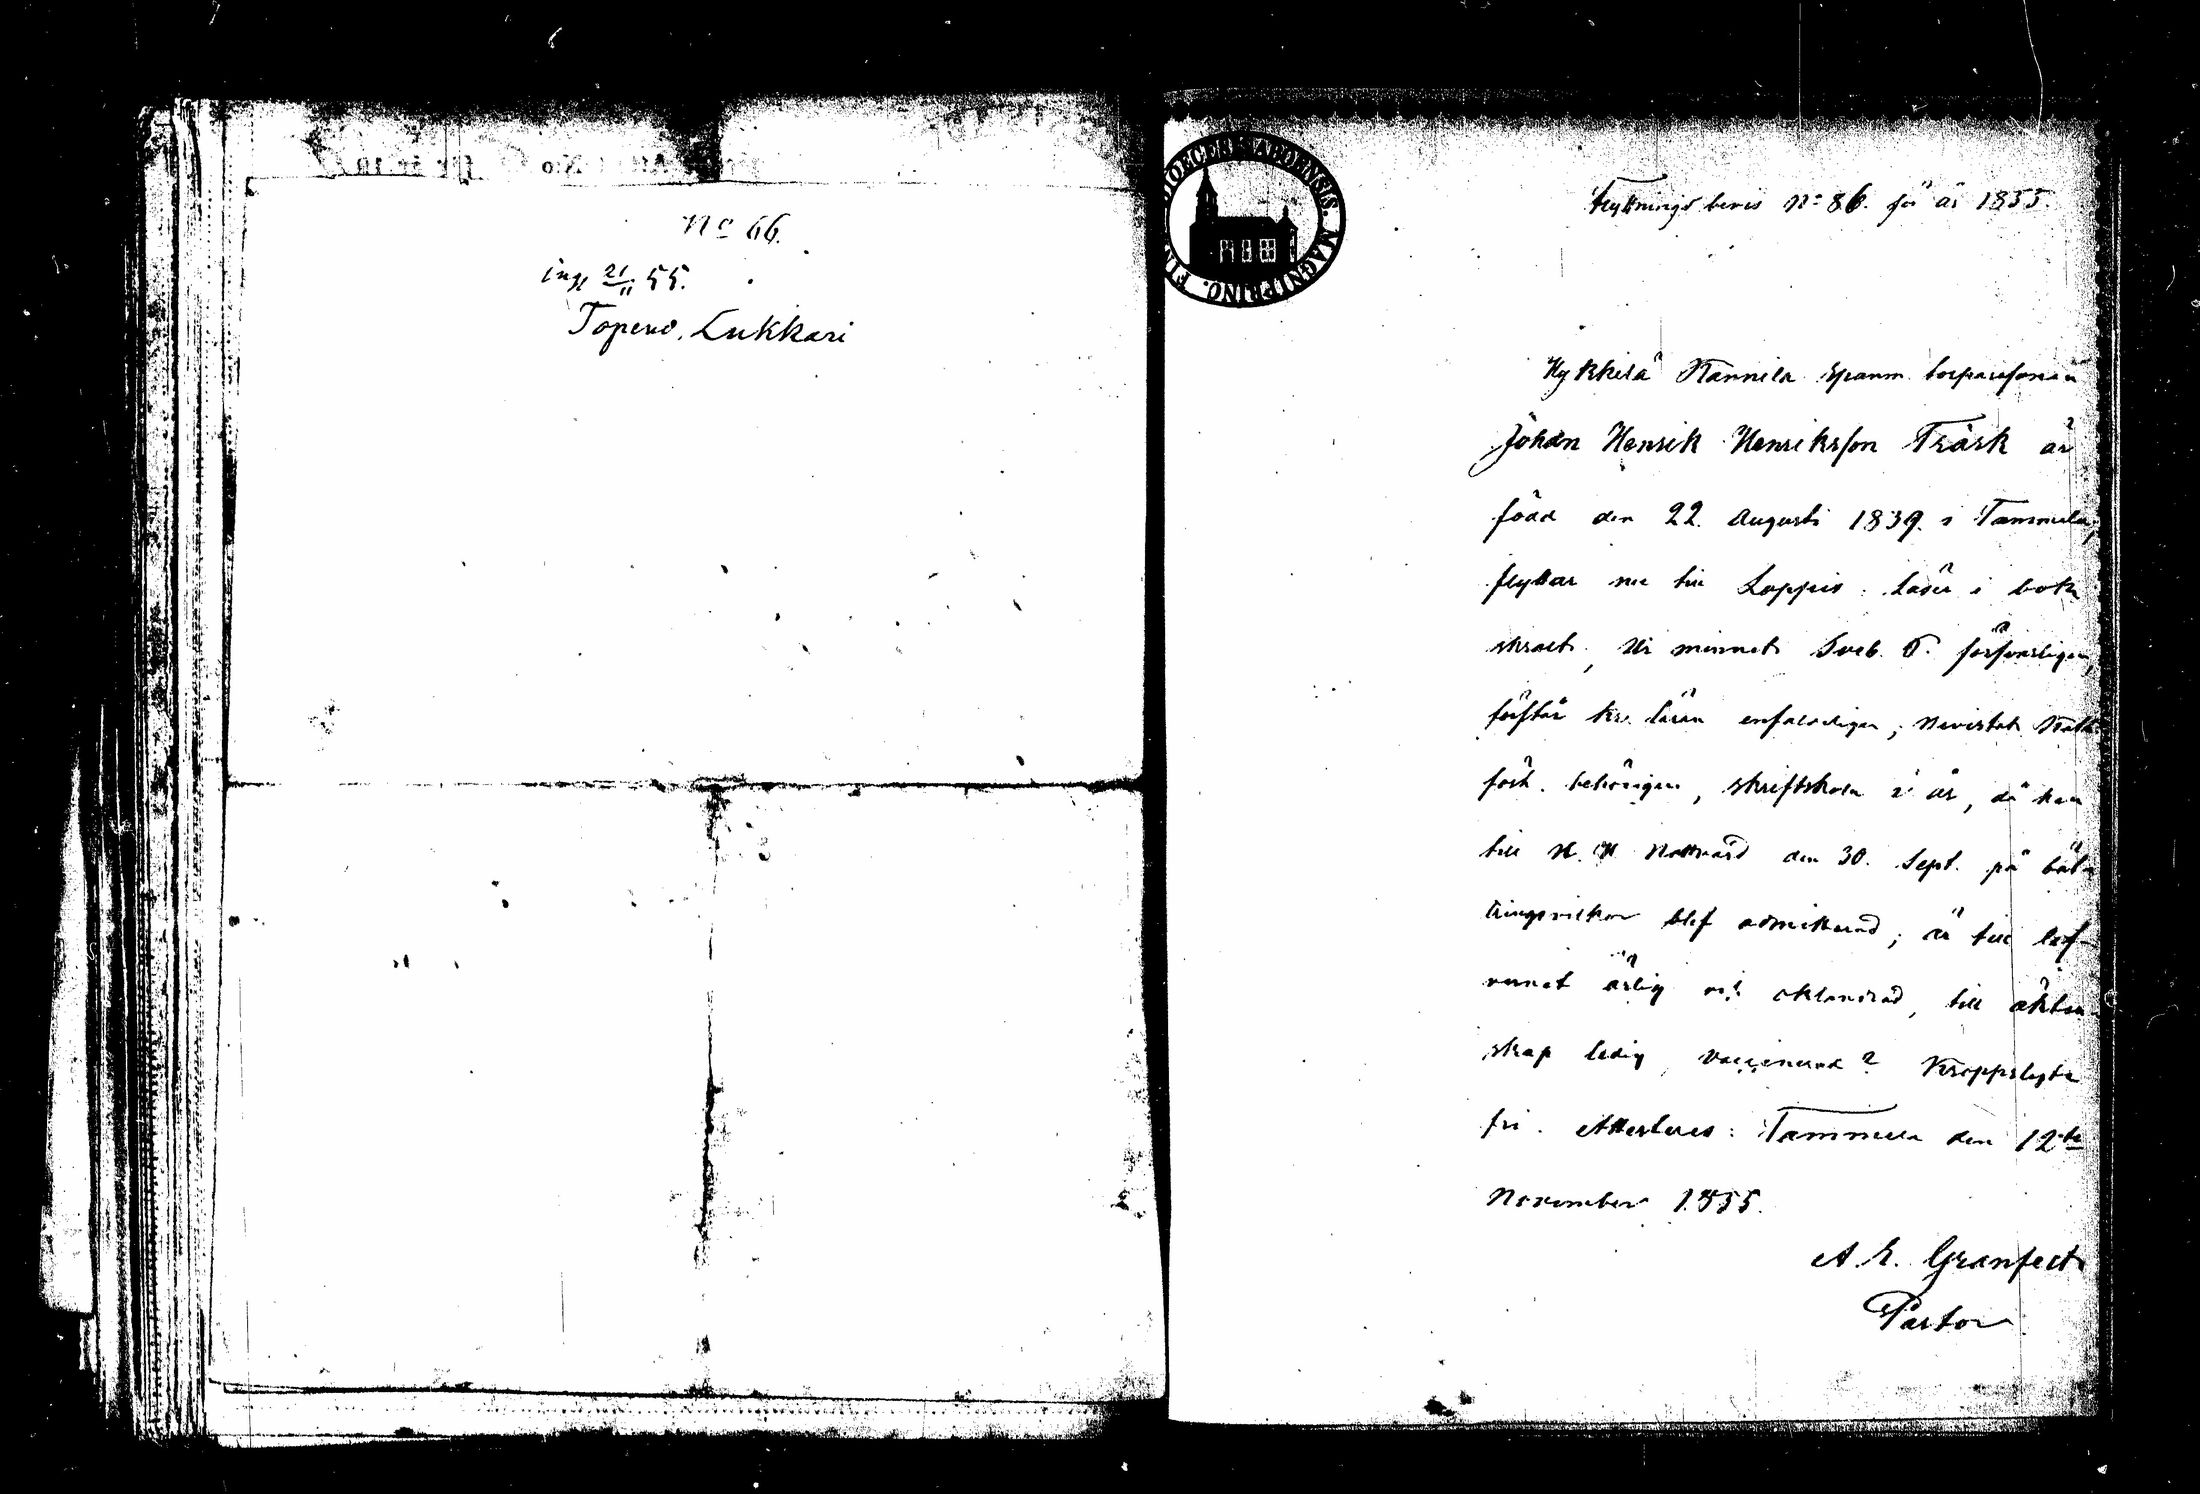 No 66.
ing 21/11 55.
Topeno, Lukkari
DIOECES: ABOENSIS. MAGNI PRINC. FIN
Flyttnings bevis No 86. för år 1855.
Hykkilä Kannila torparesonen
Johan Henrik Henriksson Träsk är
född den 22. Augusti 1839. i Tammela,
flyttar nu till Loppis: Läser i bok
skralt, Ur minnet Sveb. förfvarligen,
förstår kr. läran enfaldigen; Bevistat
förh. behörigen, skriftskola i år, då han
till H. H. Nattvard den 30. Sept. på bät-
tringsvilkor blef admitterad; är till lef-
vernet ärlig och oklandrad, till äkten-
skap ledig, vaccinerad? Kroppslyte
fri. Attesteres: Tammela den 12te
November 1855.
A. E. Granfelt
Pastor